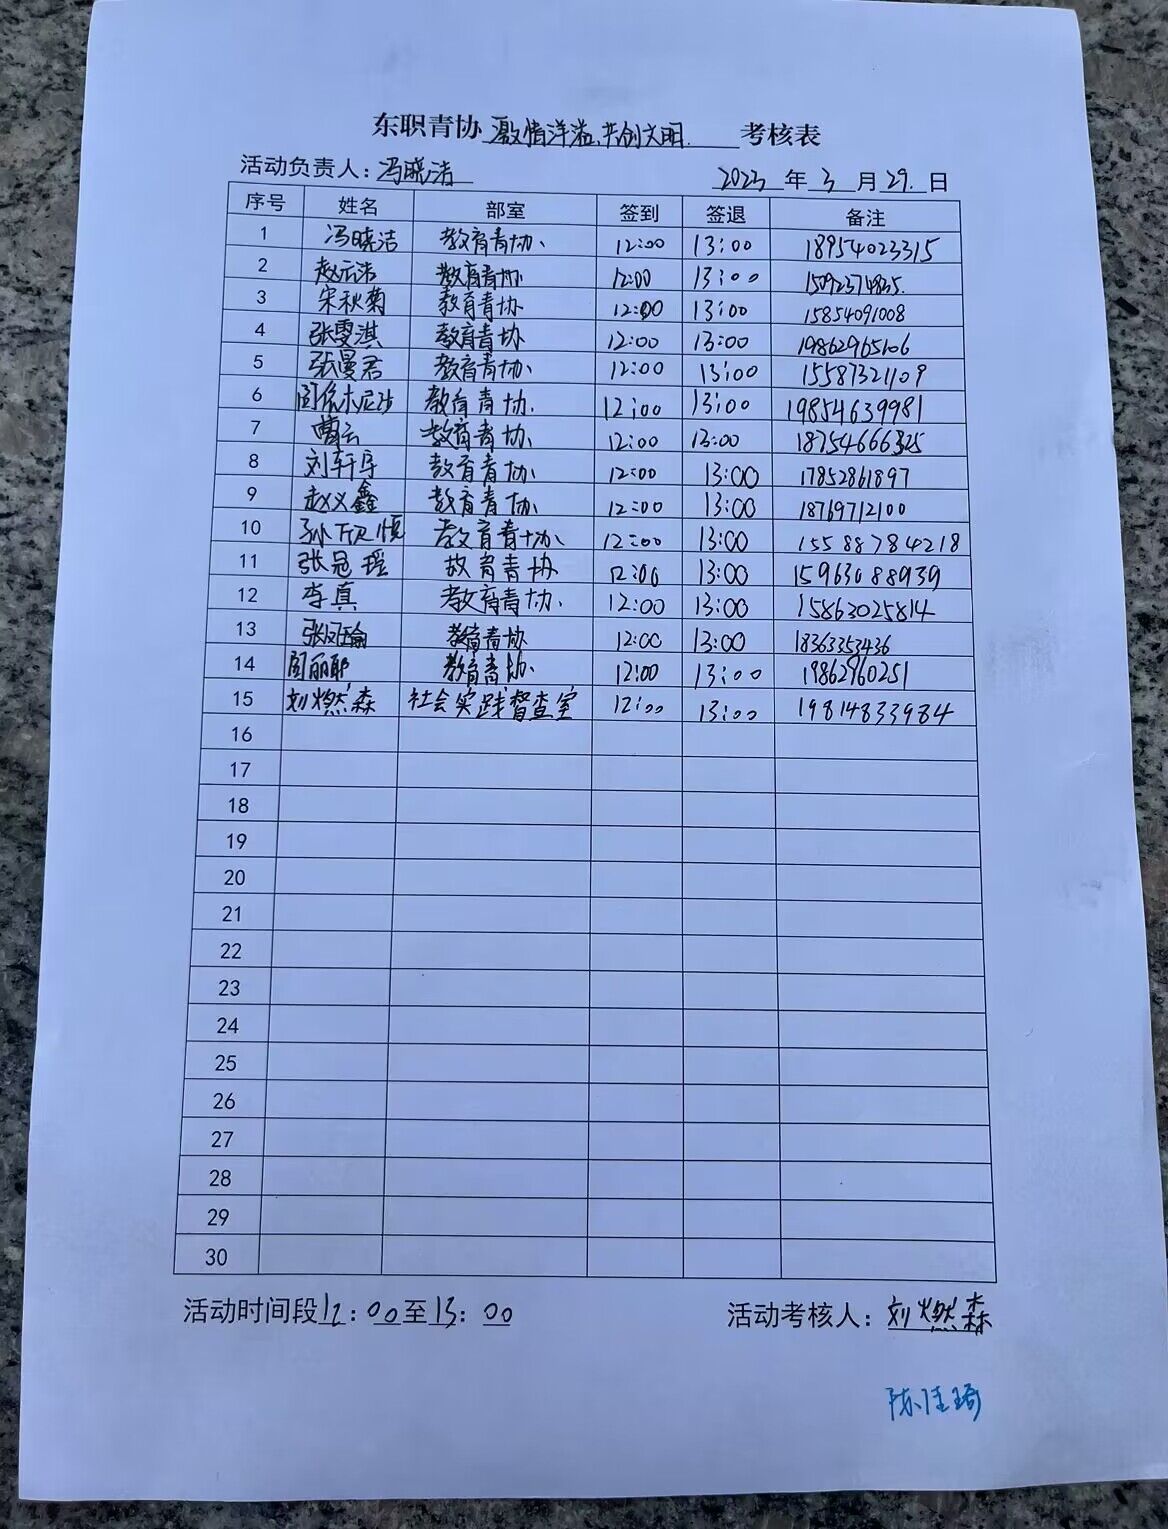 东职青协 激情洋溢、共创文明. 考核表
活动负责人：冯晓洁 2023 年 3 月 29. 日
序号 姓名 部室 签到 签退 备注
1 冯晓洁 教育青协、 12:00 13:00 18954023315
2 赵元浩 教育青协 12:00 13:00 15092374835.
3 宋秋菊 教育青协 12:00 13:00 15854091008
4 张雯淇 教育青协 12:00 13:00 19862965106
5 张曼君 教育青协. 12:00 13:00 15587321109
6 木尼沙 教育青协. 12:00 13:00 19854639981
7 曹云 教育青协. 12:00 13:00 18754666325
8 刘轩宇 教育青协. 12:00 13:00 17852861897
9 赵义鑫 教育青协. 12:00 13:00 18769712100
10 孙欣慎 教育青协、 12:00 13:00 15588784218
11 张冠瑶 教育青协 12:00 13:00 15963088939
12 李真 教育青协、 12:00 13:00 15863025814
13 张瑜 教育青协 12:00 13:00 18363353436
14 丽耶 教育青协. 12:00 13:00 19862960251
15 刘燃森 社会实践督查室 12:00 13:00 19814833984
16
17
18
19
20
21
22
23
24
25
26
27
28
29
30
活动时间段12：00至13：00 活动考核人：刘燃森
陈佳琦